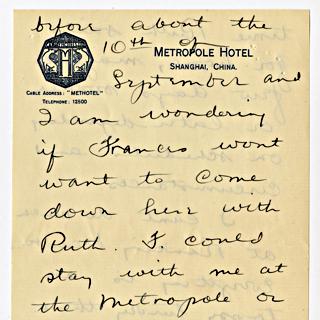 before about the
10th of
METROPOLE HOTEL
SHANGHAI, CHINA.
CABLE ADDRESS: "METHOTEL"
TELEPHONE: 12500
September and
I am wondering
if Frances wont
want to come
down here with
Ruth. F. could
stay with me at
the Metropole or